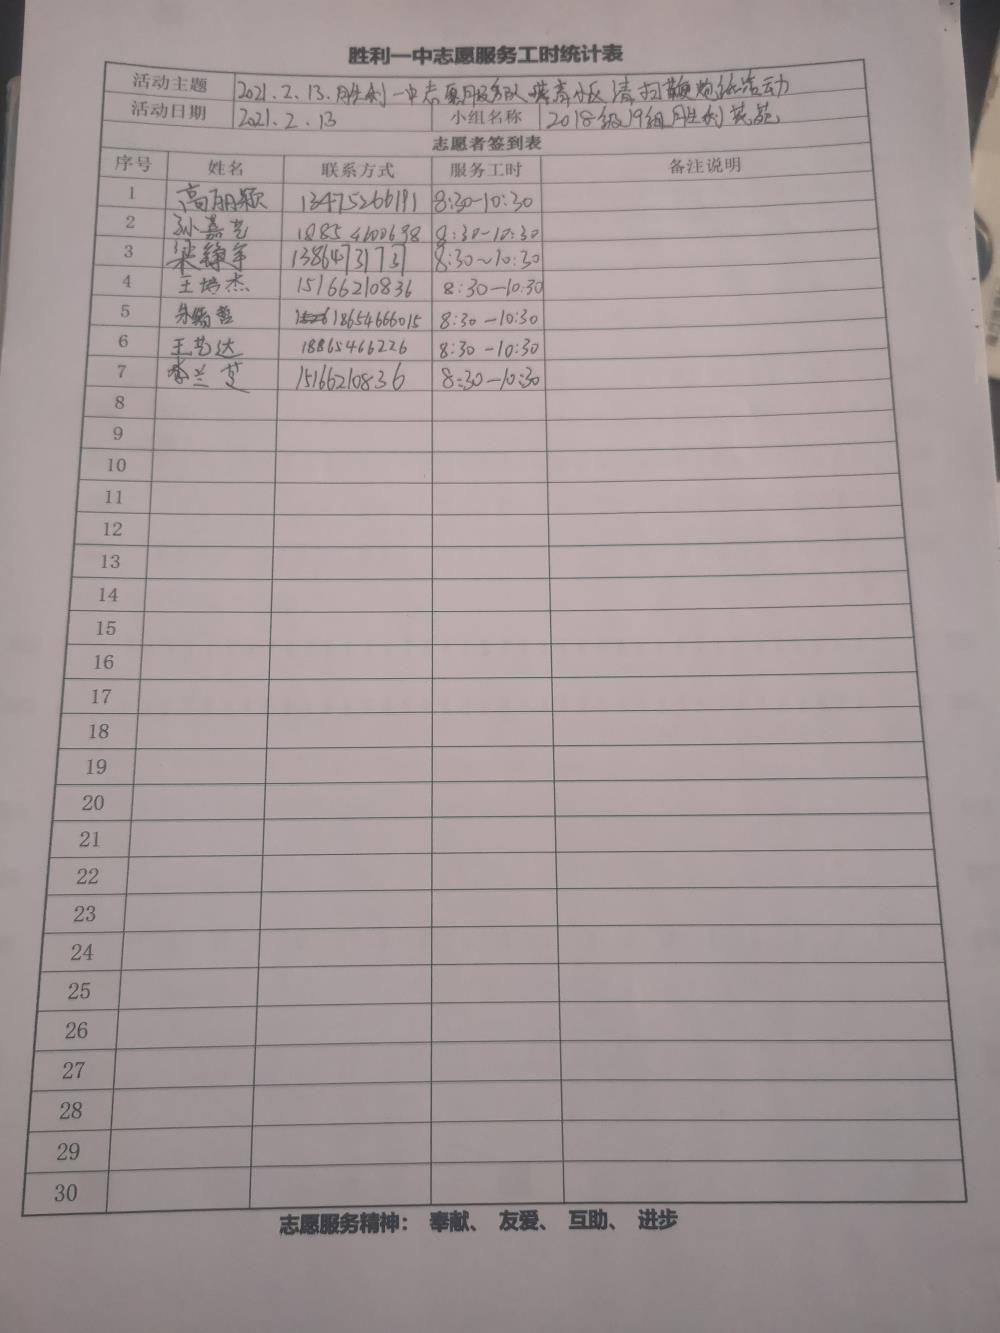 胜利一中志愿服务工时统计表
活动主题 2021.2.13.胜利一中志愿服务队 小区清扫 活动
活动日期 2021.2.13 小组名称 2018级19组胜利苑
志愿者签到表
序号 姓名 联系方式 服务工时 备注说明
1 高丽颖 13475266191 8:30-10:30
2 孙嘉艺 18854600698 8:30-10:30
3 梁铮军 13864731731 8:30~10:30
4 王培杰 15166210836 8:30-10:30
5 朱 18654666015 8:30-10:30
6 王艺达 18865466226 8:30-10:30
7 李兰芝 15166210836 8:30-10:30
8
9
10
11
12
13
14
15
16
17
18
19
20
21
22
23
24
25
26
27
28
29
30
志愿服务精神： 奉献、 友爱、 互助、 进步